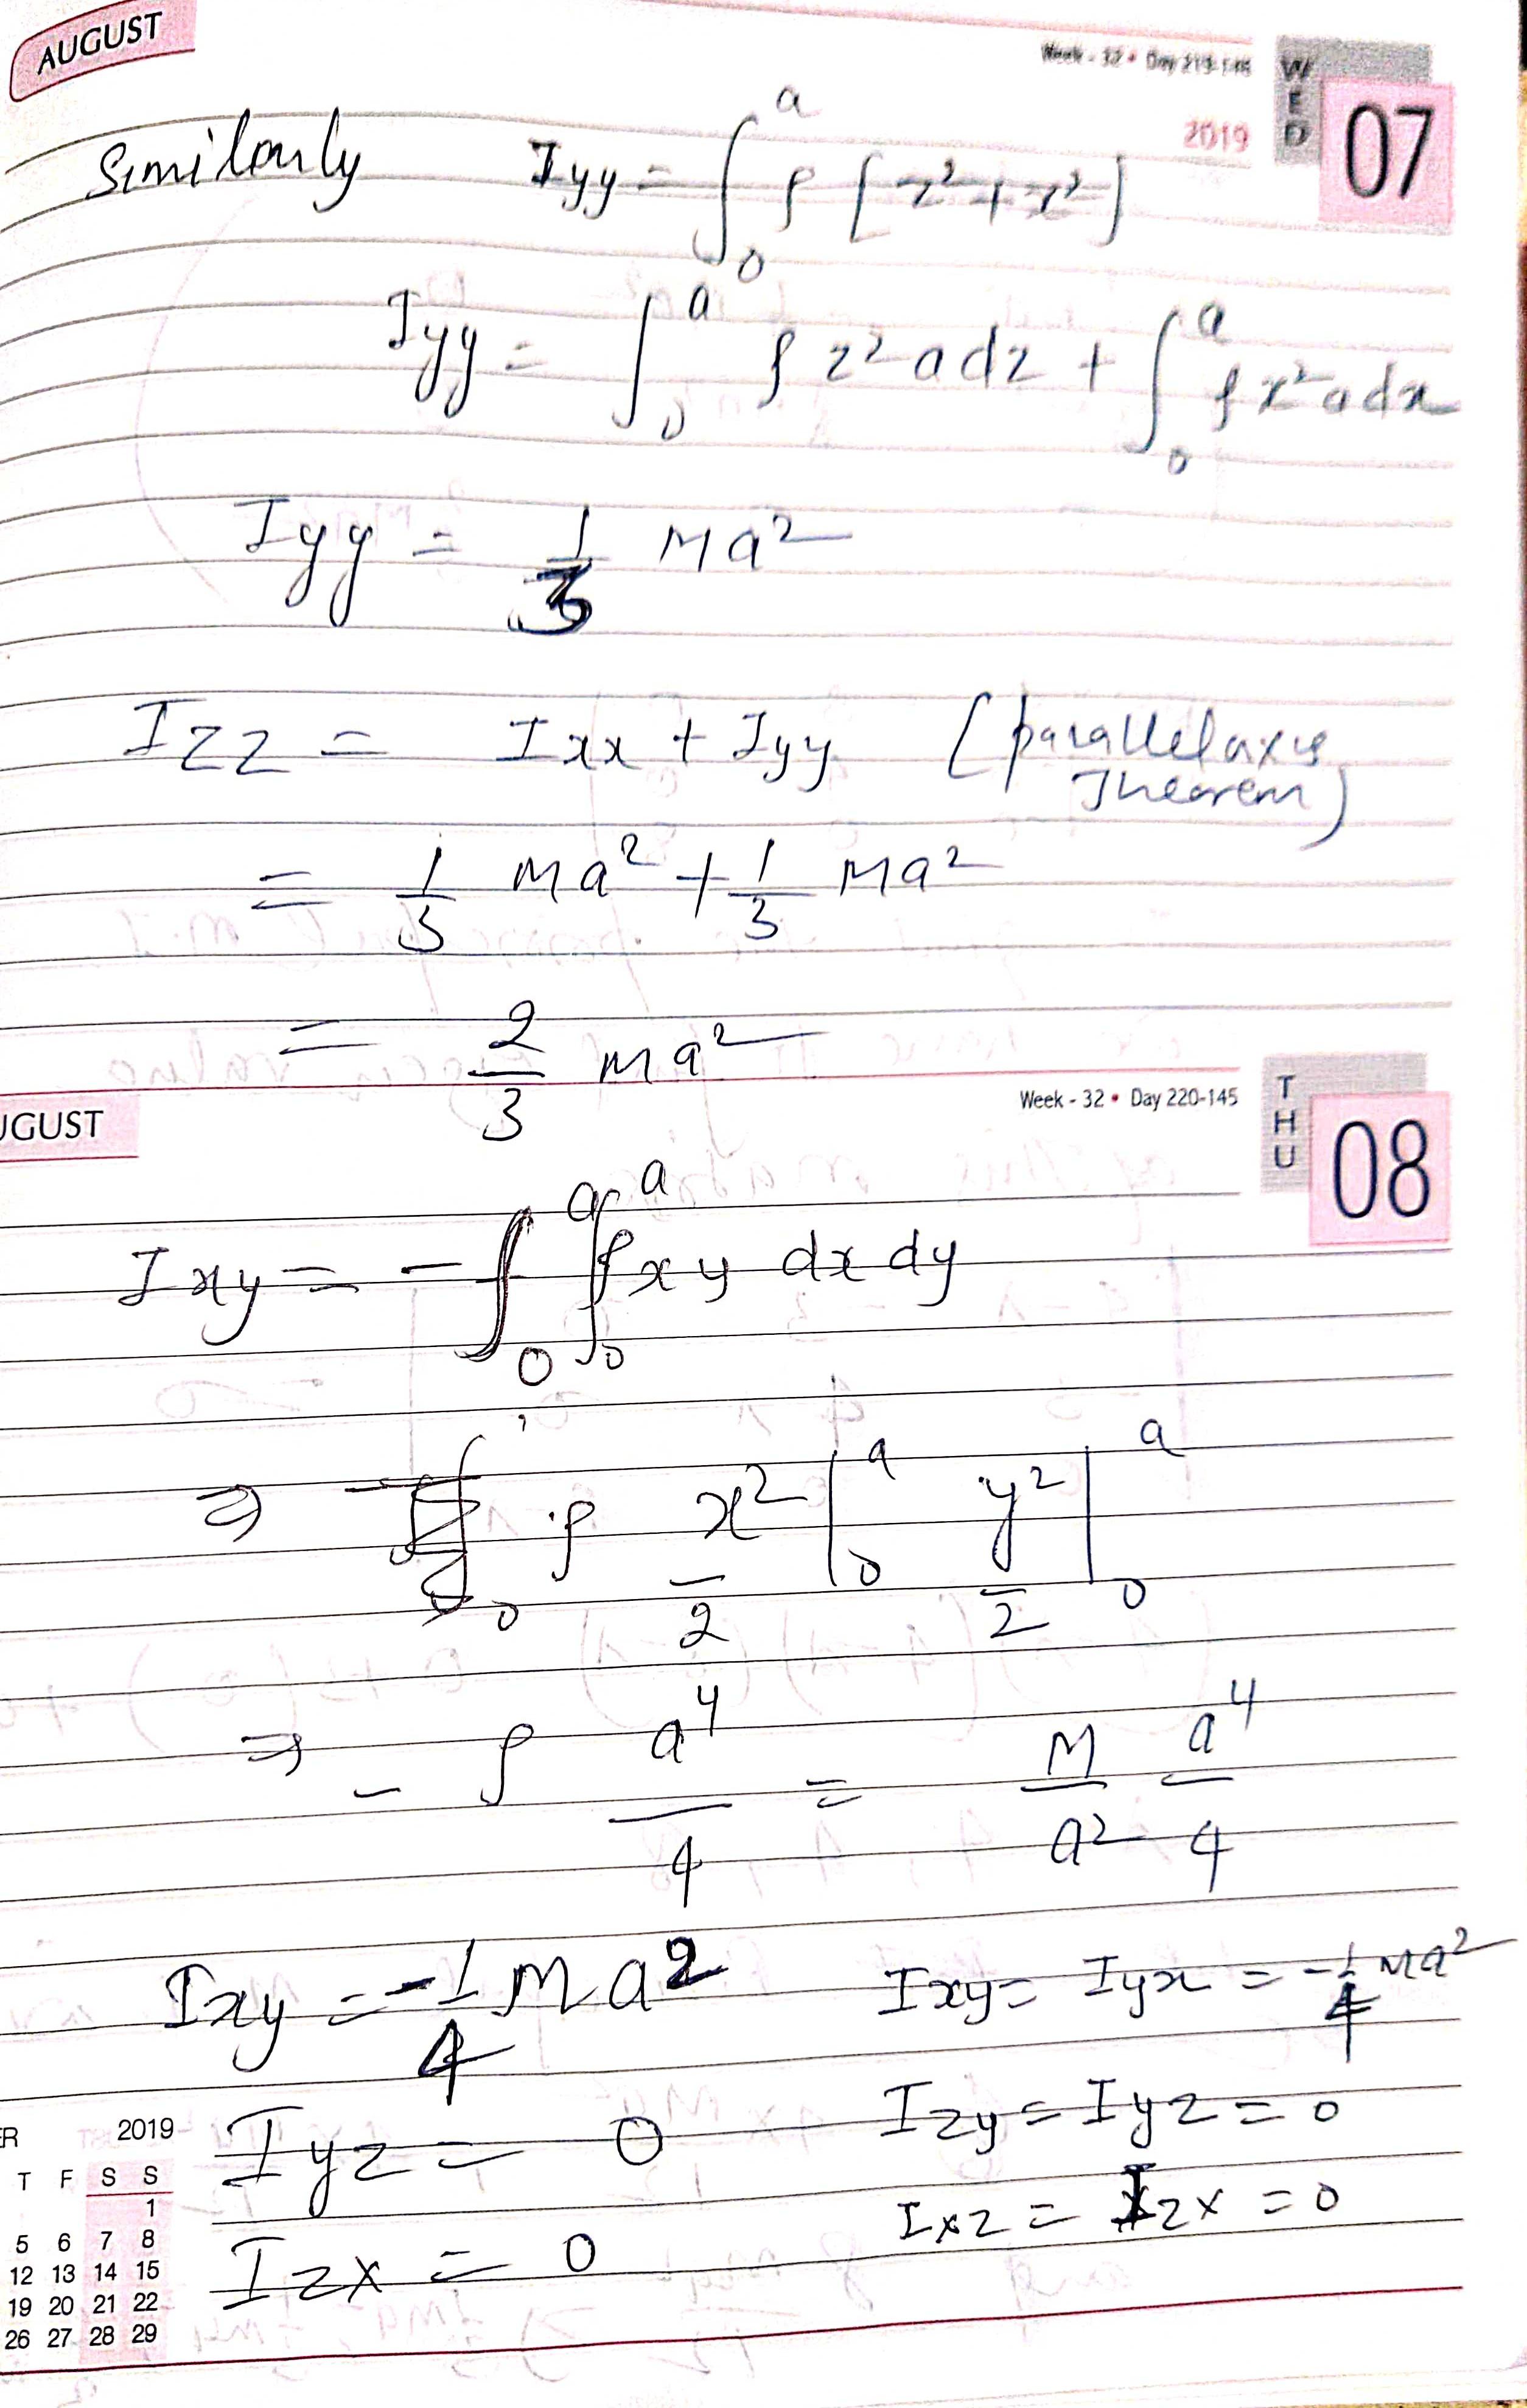 AUGUST
Week - 32 • Day 219-146
WED
07
2019
Similarly Iyy = ∫₀ᵃ ρ [z² + x²]
Iyy = ∫₀ᵃ ρ z² a dz + ∫₀ᵃ ρ x² a dx
Iyy = 1/3 Ma²
Izz = Ixx + Iyy [parallel axis
Theorem)
= 1/3 Ma² + 1/3 Ma²
= 2/3 Ma²
UGUST
Week - 32 • Day 220-145
THU
08
Ixy = - ∫₀ᵃ ∫₀ᵃ ρ x y dx dy
⇒ - ρ x²/2 |₀ᵃ y²/2 |₀ᵃ
⇒ - ρ a⁴/4 = M/a² a⁴/4
Ixy = -1/4 Ma² Ixy = Iyx = -1/4 Ma²
Iyz = 0 Izy = Iyz = 0
Izx = 0 Ixz = Izx = 0
ER 2019
T F S S
1
5 6 7 8
12 13 14 15
19 20 21 22
26 27 28 29